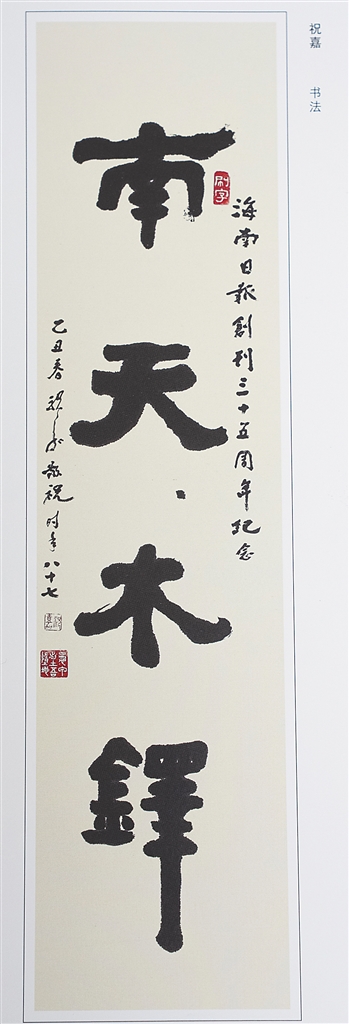 祝嘉 书法
海南日報創刊三十五周年纪念
南天木鐸
乙丑春祝嘉敬祝时年八十七